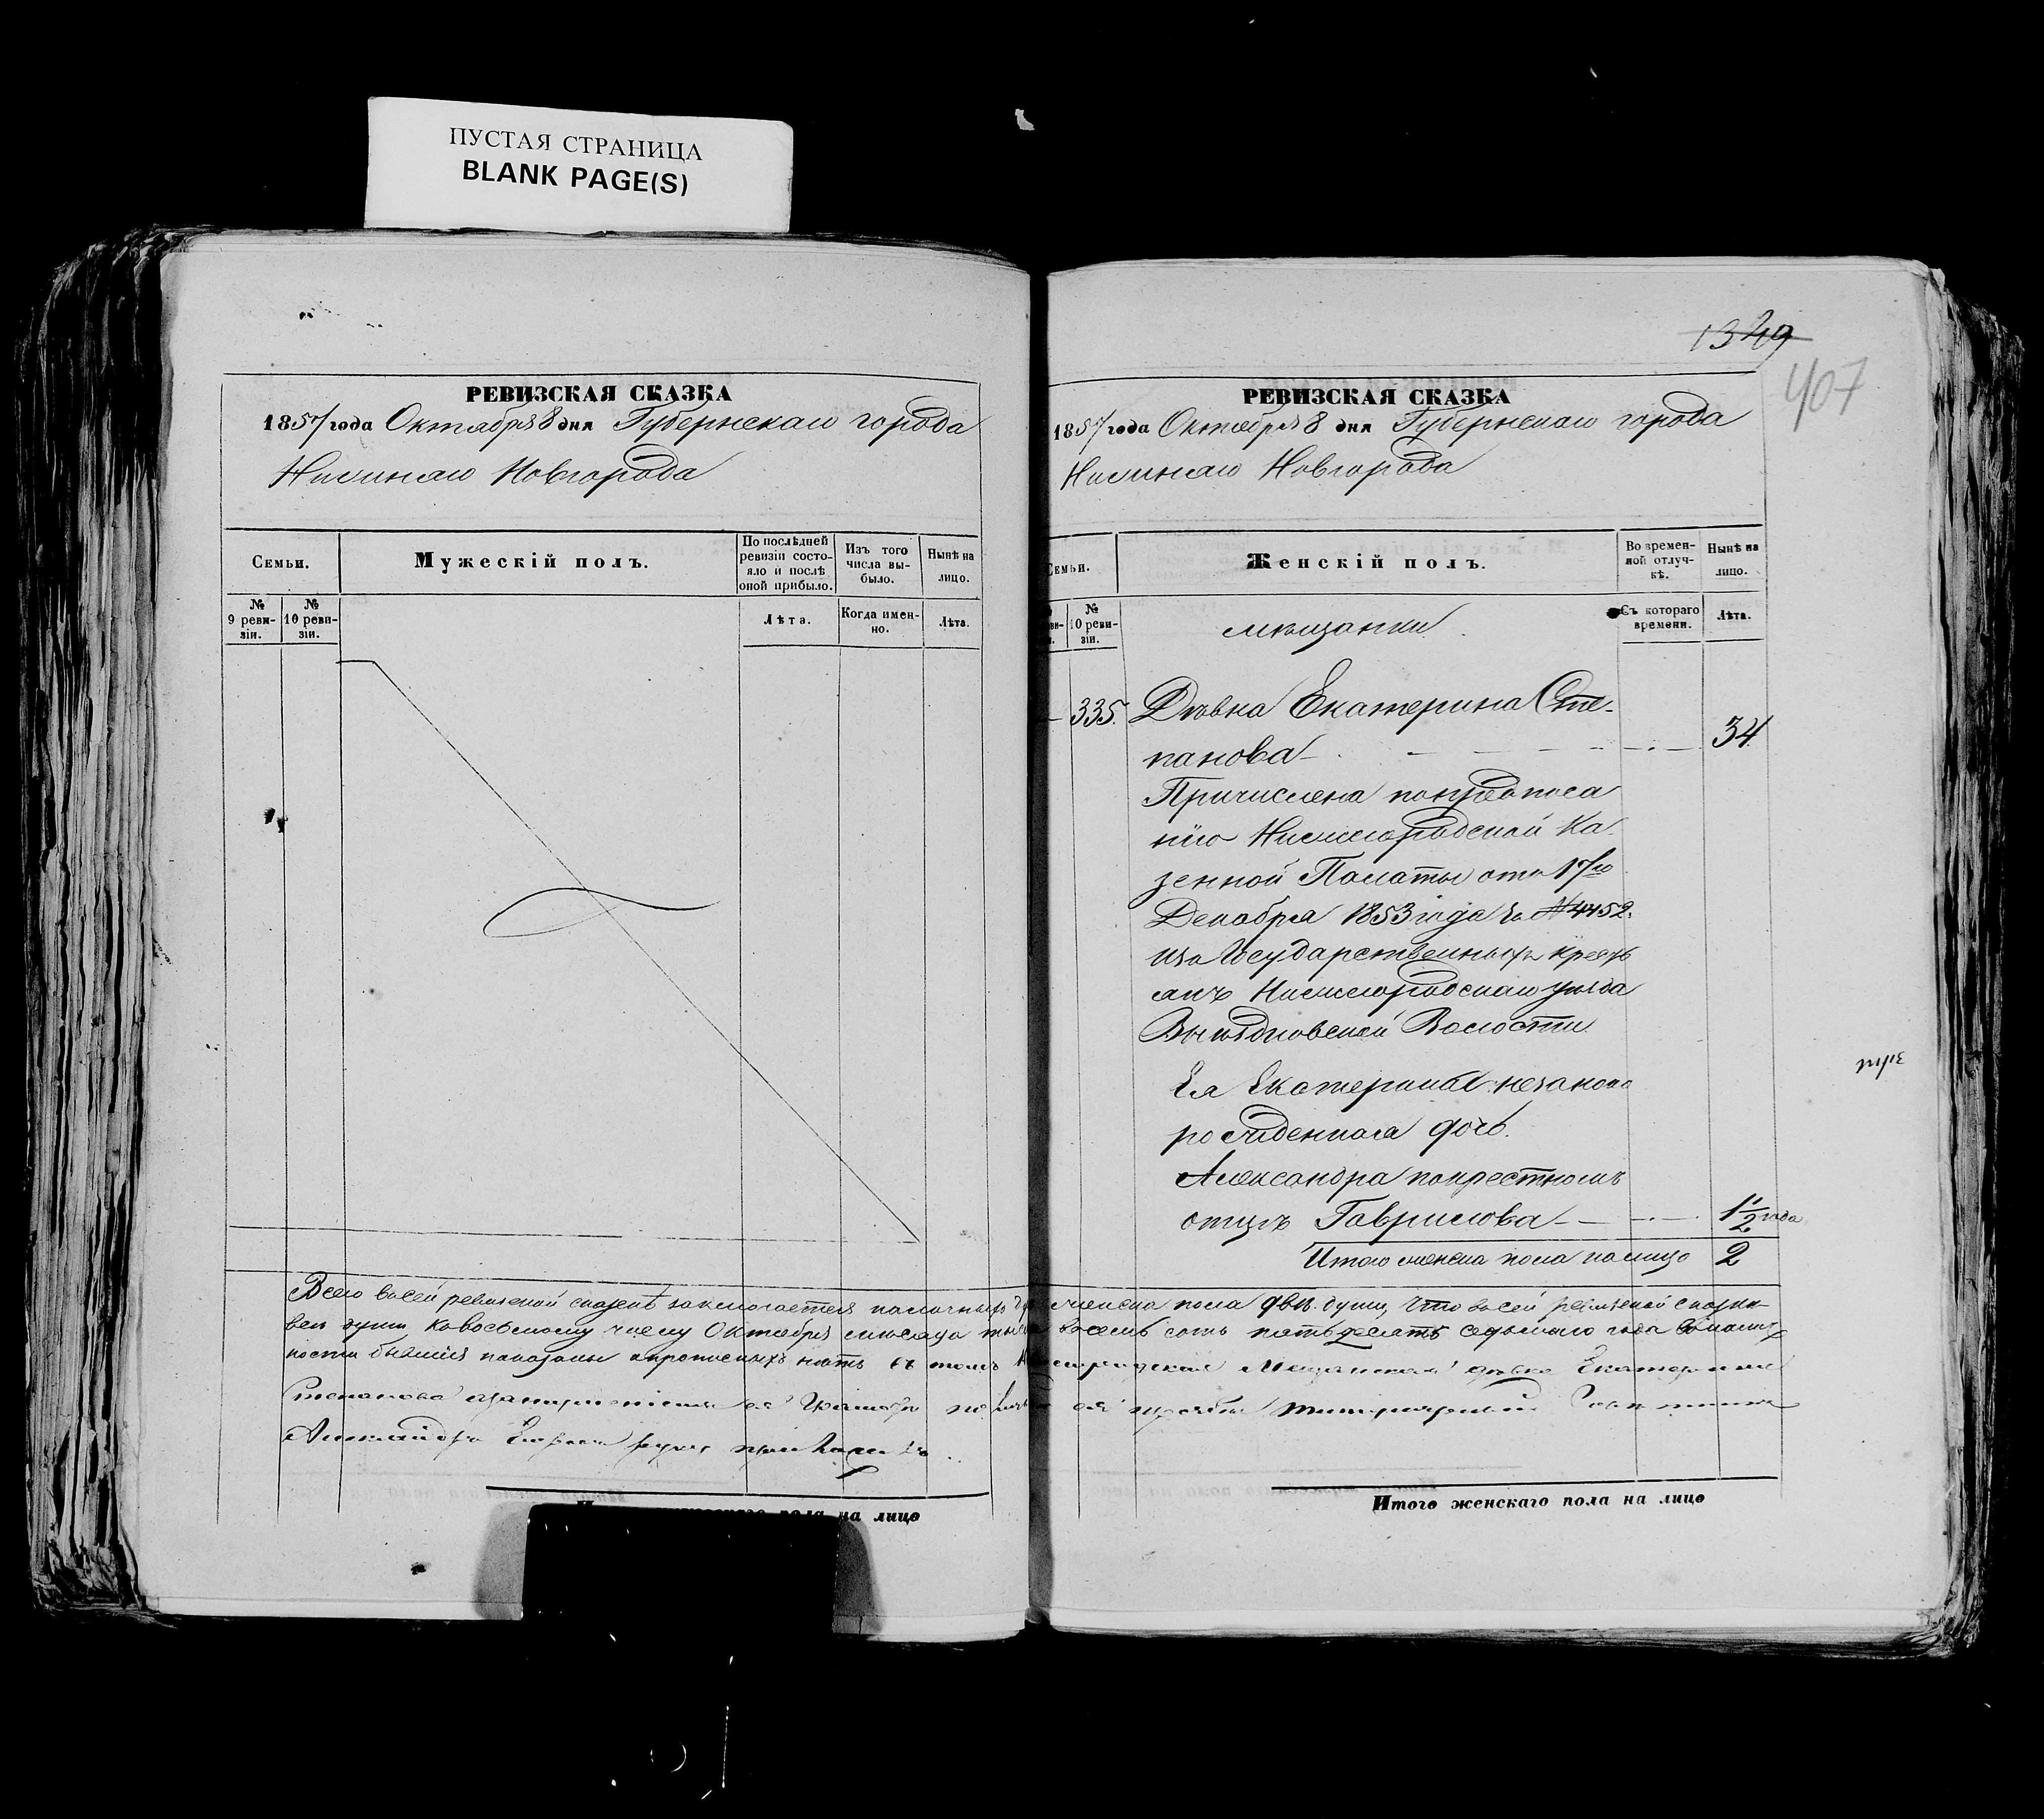 ПУСТАЯ СТРАНИЦА
BLANK PAGE(S)
РЕВИЗСКАЯ СКАЗКА
1857 года Октября 8 дня Губернскаго города
Нижняго Новгорода
Семьи.
Мужескій полъ.
По послѣдней
ревизіи состо-
яло и послѣ
оной прибыло.
Изъ того
числа вы-
было.
Нынѣ на
лицо.
№
9 реви-
зіи.
№
10 реви-
зіи.
Лѣта.
Когда имен-
но.
Лѣта.
1329
407
РЕВИЗСКАЯ СКАЗКА
1857 года Октября 8 дня Губернскаго города
Нижняго Новгорода
Семьи.
Женскій полъ.
Во времен-
ной отлуч-
кѣ.
Нынѣ на
лицо.
№
10 реви-
зіи.
мѣщанки
Съ котораго
времени.
Лѣта.
335. Дѣвка Екатерина Сте-
панова 34
Причислена по предписа
нію Нижегородской Ка
зенной Палаты отъ 17го
Декабря 1853 года за № 4452.
изъ Государственныхъ крест
янъ Нижегородскаго уѣзда
Волости
Ея Екатерины незаконо
рожденная дочь
Александра по крестномъ
отцѣ Гаврилова 1 1/2 года
Итого женска пола на лицо 2
Всего в сей ревизской сказкѣ заключается наличныхъ женска пола двѣ души, что в сей ревизской сказки
всѣ души к восьмому числу Октября мѣсяца восемь сотъ пятьдесятъ седьмаго года
бывшія показаны и прописныхъ нѣтъ въ томъ Мещанская дѣвка Екатерина
Степанова а ея
руку приложилъ
на лицо
Итого женскаго пола на лицо